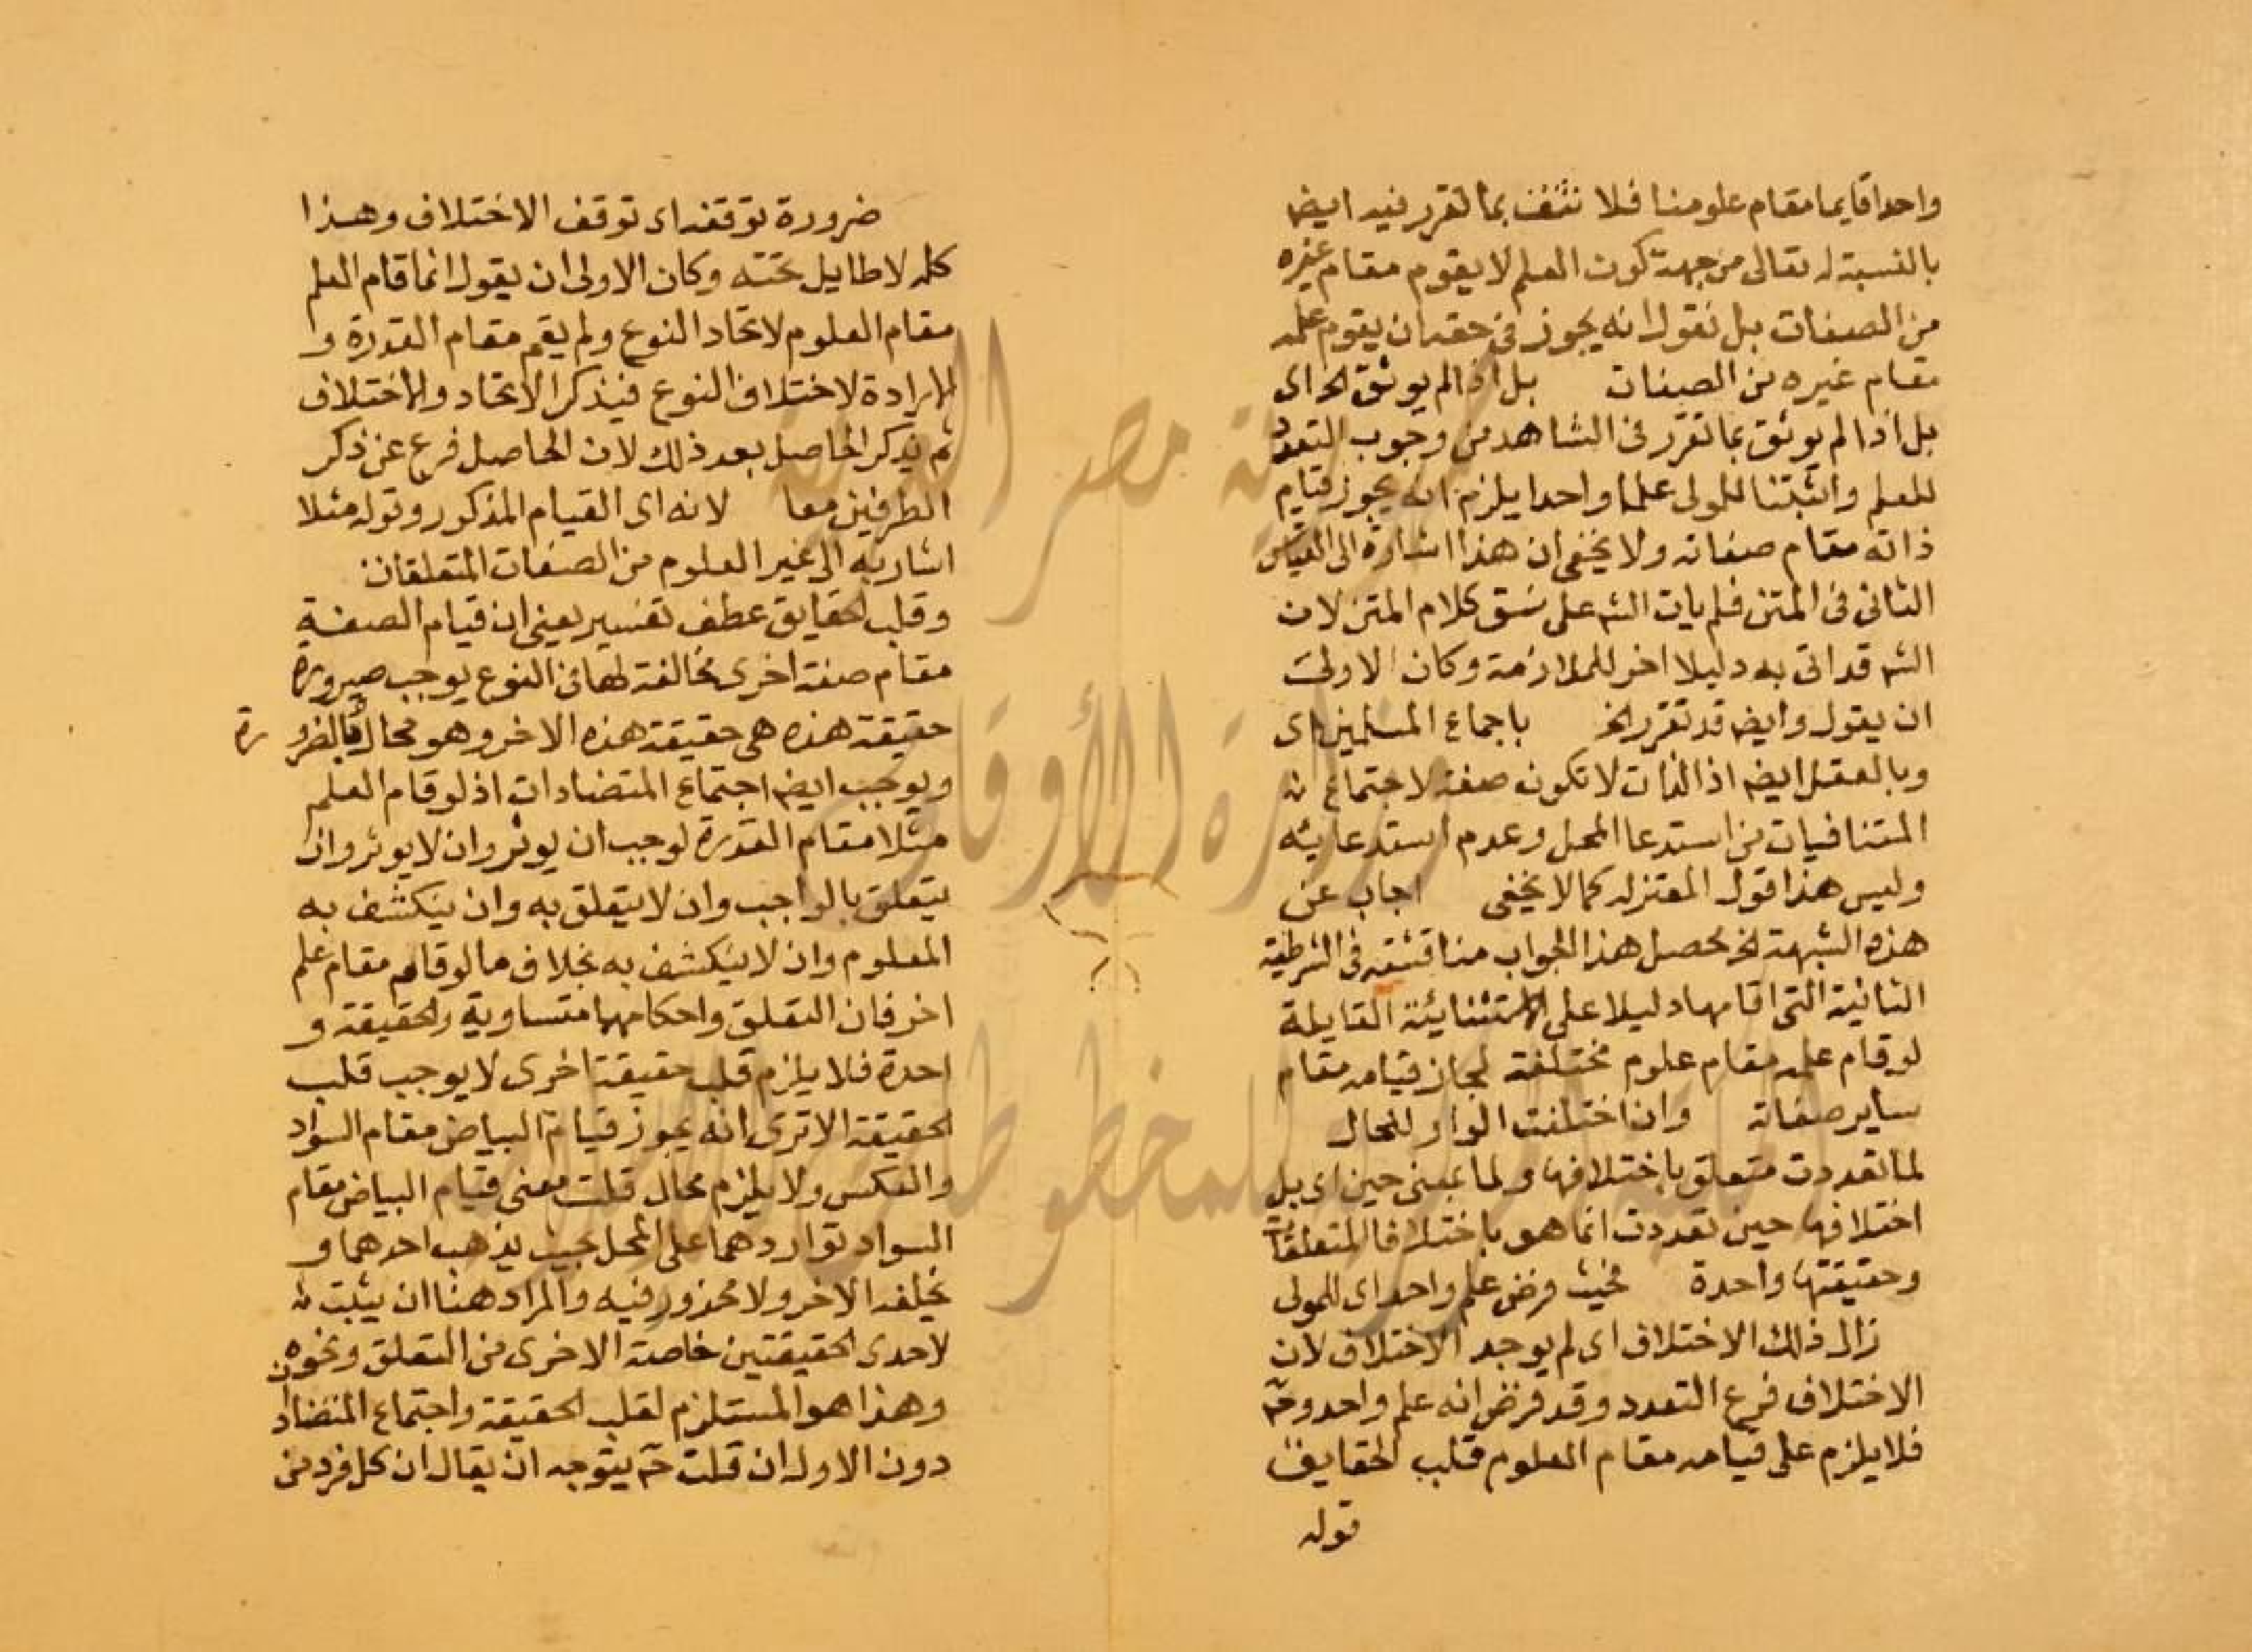 واحدا قايما مقام علومنا فلا نثق بما تقرر فيه ايض
بالنسبة له تعالى من جهة كون العلم لا يقوم مقام غيره
من الصفات بل نقول انه يجوز في حقه ان يقوم علمه
مقام غيره من الصفات بل اذا لم يوثق الخ اى
بل اذا لم يوثق بما تقرر في الشاهد من وجوب التعدد
للعلم واثبتنا للمولى علما واحدا يلزم انه يجوز قيام
ذاته مقام صفاته ولا يخفى ان هذا اشارة الى القياس
الثانى في المتن فلم يات الشه على نسق كلام المتن لان
الشه قد اتى به دليلا اخر للملازمة وكان الاولى
ان يقول وايض قد تقرر الخ باجماع المسلمين اى
وبالعقل ايض اذ الذات لا تكون صفة لاجتماع
المتنافيات من استدعا المحل وعدم استدعايه
وليس هذا قول المعتزله كما لا يخفى اجاب عن
هذه الشبهة الخ محصل هذا الجواب مناقشة في الشرطية
الثانية التى اقامها دليلا على الاستثنائية القايلة
لو قام علمه مقام علوم مختلفة لجاز قيامه مقام
ساير صفاته وان اختلفت الواو للحال
لما تعددت متعلق باختلافها ولما بمعنى حين اى بل
اختلافها حين تعددت انما هو باختلاف المتعلقات
وحقيقتها واحدة فحيث فرض علم واحد اى للمولى
زال ذلك الاختلاف اى لم يوجد الاختلاف لان
الاختلاف فرع التعدد وقد فرض انه علم واحد وح
فلا يلزم على قيامه مقام العلوم قلب الحقايق
قوله
ضرورة توقفه اى توقف الاختلاف وهذا
كله لا طايل تحته وكان الاولى ان يقول انما قام العلم
مقام العلوم لاتحاد النوع ولم يقم مقام القدرة و
الارادة لاختلاف النوع فيذكر الاتحاد والاختلاف
ثم يذكر الحاصل بعد ذلك لان الحاصل فرع عن ذكر
الطرفين معا لانه اى القيام المذكور وقوله مثلا
اشار به الى غير العلوم من الصفات المتعلقات
وقلب الحقايق عطف تفسير يعنى ان قيام الصفة
مقام صفة اخرى مخالفة لها في النوع يوجب صيرورة
حقيقة هذه هى حقيقة هذه الاخر وهو محال بالضرو رة
ويوجب ايض اجتماع المتضادات اذ لو قام العلم
مثلا مقام القدرة لوجب ان يوثر وان لا يوثر وان
يتعلق بالواجب وان لا يتعلق به وان ينكشف به
المعلوم وان لا ينكشف به بخلاف ما لو قام مقام علم
اخر فان التعلق واحكامها متساوية والحقيقة و
احدة فلا يلزم قلب حقيقة اخرى لا يوجب قلب
الحقيقة الا ترى انه يجوز قيام البياض مقام السواد
والعكس ولا يلزم محال قلت معنى قيام البياض مقام
السواد تواردهما على المحل بحيث يذهب احدهما و
يخلفه الاخر ولا محذور فيه والمراد هنا ان يثبت
لاحدى الحقيقتين خاصة الاخرى من التعلق ونحوه
وهذا هو المستلزم لقلب الحقيقة واجتماع المتضاد
دون الاول ان قلت ح يتوجه ان يقال ان كل فرد من